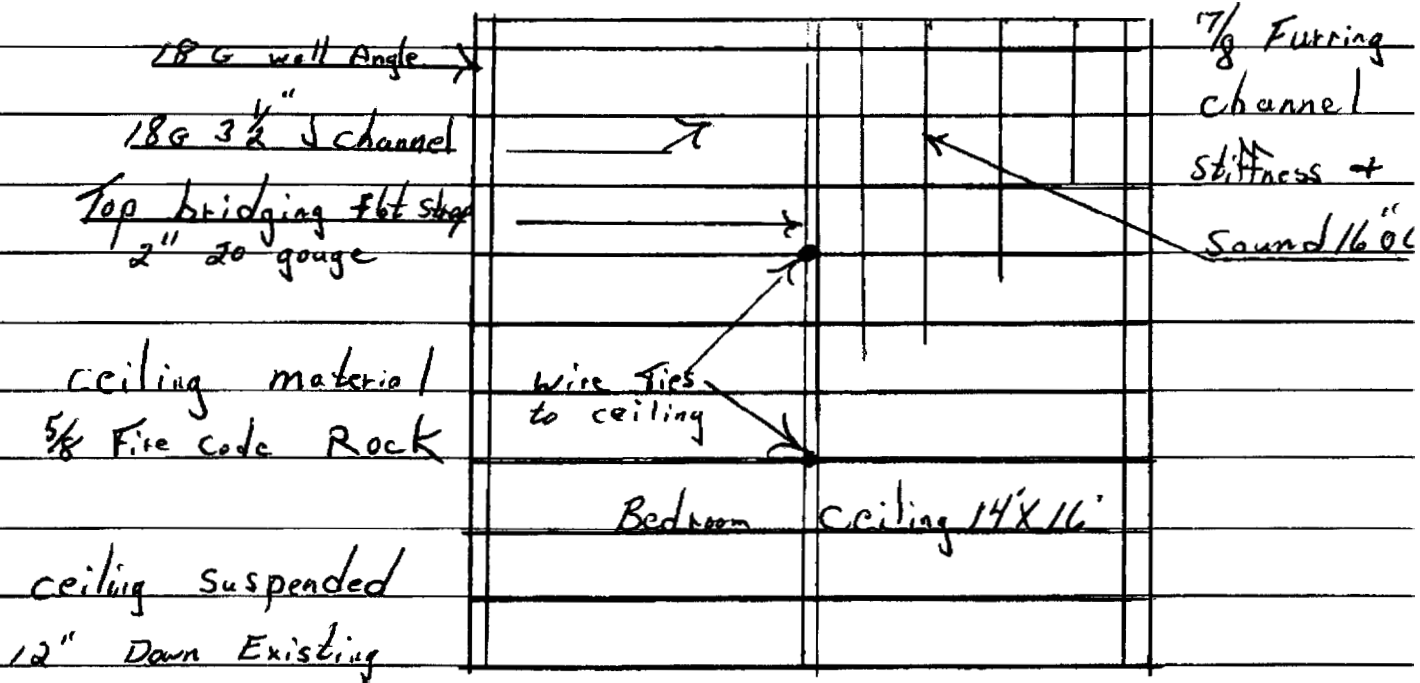 18 G wall Angle
18G 3 1/2" J channel
Top bridging flat strap
2" 20 gouge
ceiling material
5/8 Fire Code Rock
ceiling suspended
12" Down Existing
wire Ties
to ceiling
Bedroom ceiling 14'X16'
7/8 Furring
channel
stiffness +
Sound 16" OC